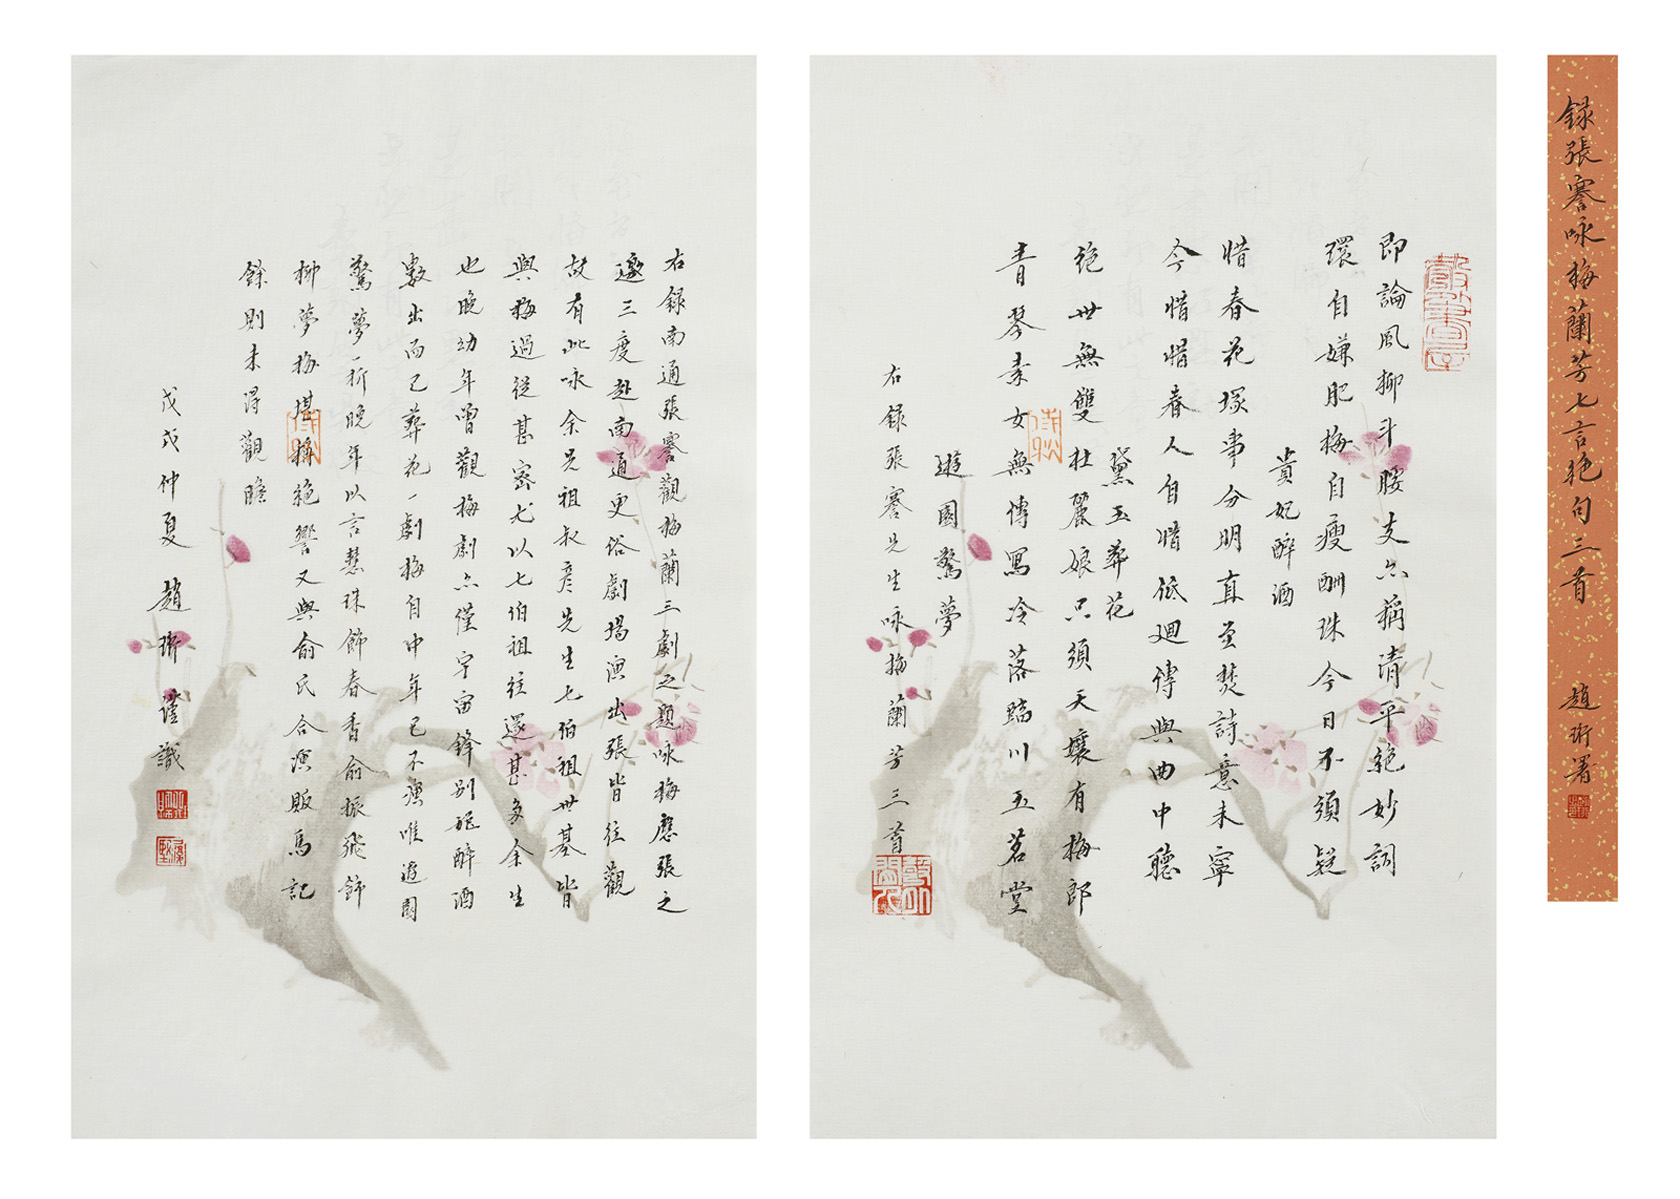 錄張謇咏梅蘭芳七言絶句三首 趙珩署
即論風柳斗腰支亦稱清平絶妙詞
環自嫌肥梅自瘦酬珠今日不須疑
貴妃醉酒
惜春花塚事分明真至焚詩意未寧
今惜惜春人自惜低迴傳與曲中聽
黛玉葬花
絶世無雙杜麗娘只須天壤有梅郎
青琴素女無傳寫冷落臨川玉茗堂
遊園驚夢
右錄張謇先生咏梅蘭芳三首
右錄南通張謇觀梅蘭三劇之題咏梅應張之
邀三度赴南通更俗劇場演出張皆往觀
故有此咏余兄祖叔彦先生七伯祖世基皆
與梅過從甚密尤以七伯祖往還甚多余生
也晚幼年曾觀梅劇亦僅宇宙鋒别姬醉酒
數出而已葬花一劇梅自中年已不演唯遊園
驚夢一折晚年以言慧珠飾春香俞振飛飾
柳夢梅堪稱絶響又與俞氏合演販馬記
餘則未得觀瞻
戊戌仲夏 趙珩謹識